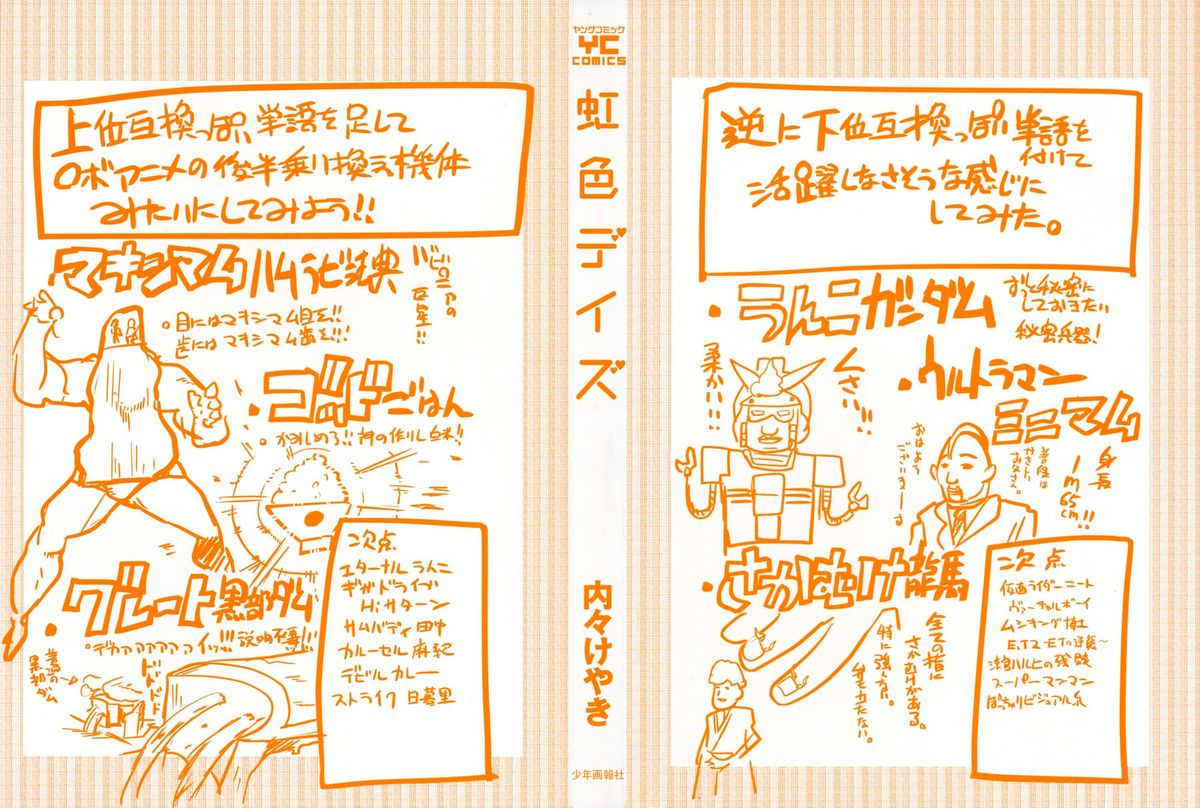 上位互換っぽい単語を足して
ロボアニメの後半乗り換え機体
みたいにしてみよう!!
マキシマムハムラビ法典
バビロニアの
巨星!!
。目にはマキシマム目を!!
歯にはマキシマム歯を!!!
・ゴッドごはん
。かみしめろ!!神の作りし白米!!
・グレート黒部ダム
。デカァァァァァイッ!!!説明不要!!!
普通の
黒部
ダム
ドドドド
二次点
エターナルうんこ
ギガドライブ
Hi サターン
サムバディ田中
カルーセル麻紀
デビルカレー
ストライク日暮里
ヤングコミック
YC
COMICS
虹色デイズ
内々けやき
少年画報社
逆に下位互換っぽい単語を
付けて
活躍しなさそうな感じに
してみた。
・うんこガンダム
ずっと秘密に
しておきたい
秘密兵器!
くさい!!
柔かい!!
・ウルトラマン
ミニマム
身長
1m65cm!!
普段は
お父さん。
おはよう
ございまーす
・さかむけ龍馬
全ての指に
さかむけがある。
特に強くない。
弁もたたない。
二次点
仮面ライダーニート
ヴァーチャルボーイ
ムシキング博士
E.T.2 -E.Tの逆襲〜
涼宮ハルヒの残骸
スーパーマンマン
ぽっちゃりビジュアル系